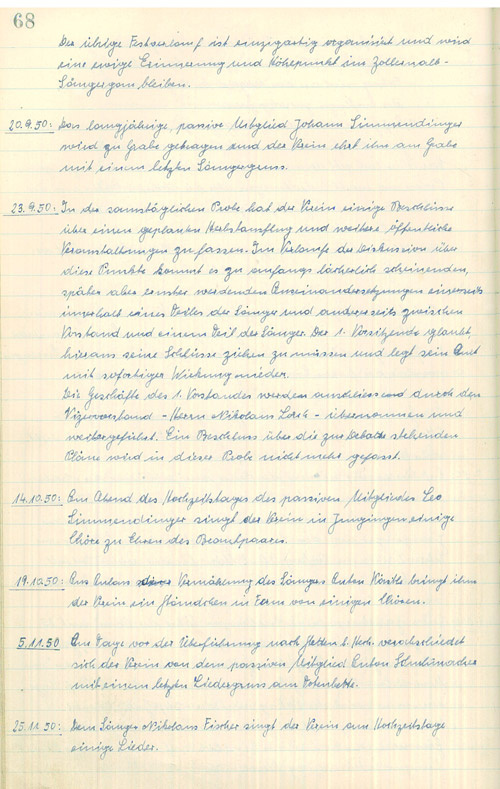 68
Der übrige Festverlauf ist einzigartig organisiert und wird
eine ewige Erinnerung und Höhepunkt im Zollernalb-
Sängergau bleiben.
20.9.50: Das langjährige, passive Mitglied Johann Simmendinger
wird zu Grabe getragen und der Verein ehrt ihn am Grabe
mit einem letzten Sängergruss.
23.9.50: In der samstäglichen Probe hat der Verein einige Beschlüsse
über einen geplanten Herbstausflug und weitere öffentliche
Veranstaltungen zu fassen. Im Verlaufe der Diskussion über
diese Punkte kommt es zu anfangs lächerlich scheinenden,
später aber ernster werdenden Auseinandersetzungen einerseits
innerhalb eines Teiles der Sänger und anderseits zwischen
Vorstand und einem Teil der Sänger. Der 1. Vorsitzende glaubt,
hieraus seine Schlüsse ziehen zu müssen und legt sein Amt
mit sofortiger Wirkung nieder.
Die Geschäfte des 1. Vorstandes werden anschliessend durch den
Vizevorstand - Herrn Nikolaus Lorch - übernommen und
weitergeführt. Ein Beschluss über die zur Debatte stehenden
Pläne wird in dieser Probe nicht mehr gefasst.
14.10.50: Am Abend des Hochzeitstages des passiven Mitgliedes Leo
Simmendinger singt der Verein in Jungingen einige
Chöre zu Ehren des Brautpaares.
19.10.50: Aus Anlass der Vermählung des Sängers Anton Köstle bringt ihm
der Verein ein Ständchen in Form von einigen Chören.
5.11.50 Am Tage vor der Überführung nach Stetten b. Hech. verabschiedet
sich der Verein von dem passiven Mitglied Anton Schuhmacher
mit einem letzten Liedergruss am Totenbette.
25.11.50: Dem Sänger Nikolaus Fischer singt der Verein am Hochzeitstage
einige Lieder.